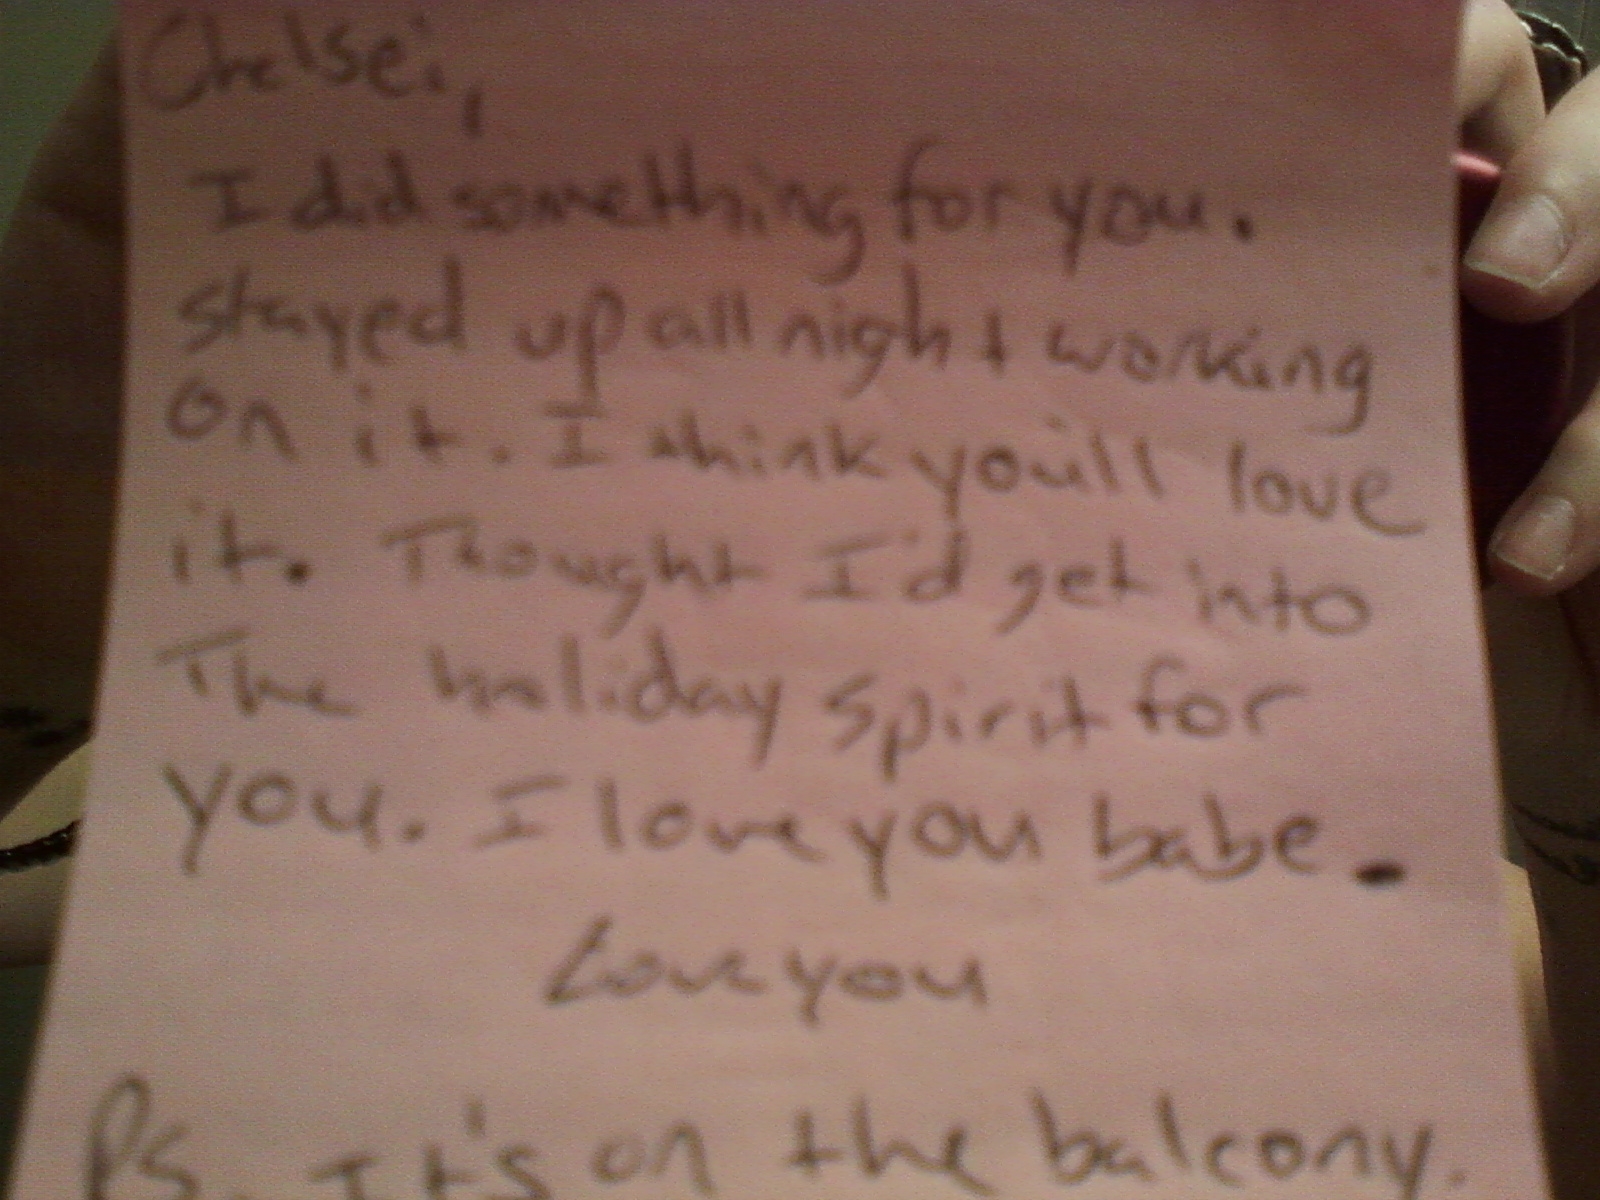 Chelsei,
I did something for you.
stayed up all night working
on it. I think you'll love
it. Thought I'd get into
The holiday spirit for
you. I love you babe.
Love you
Ps. It's on the balcony.